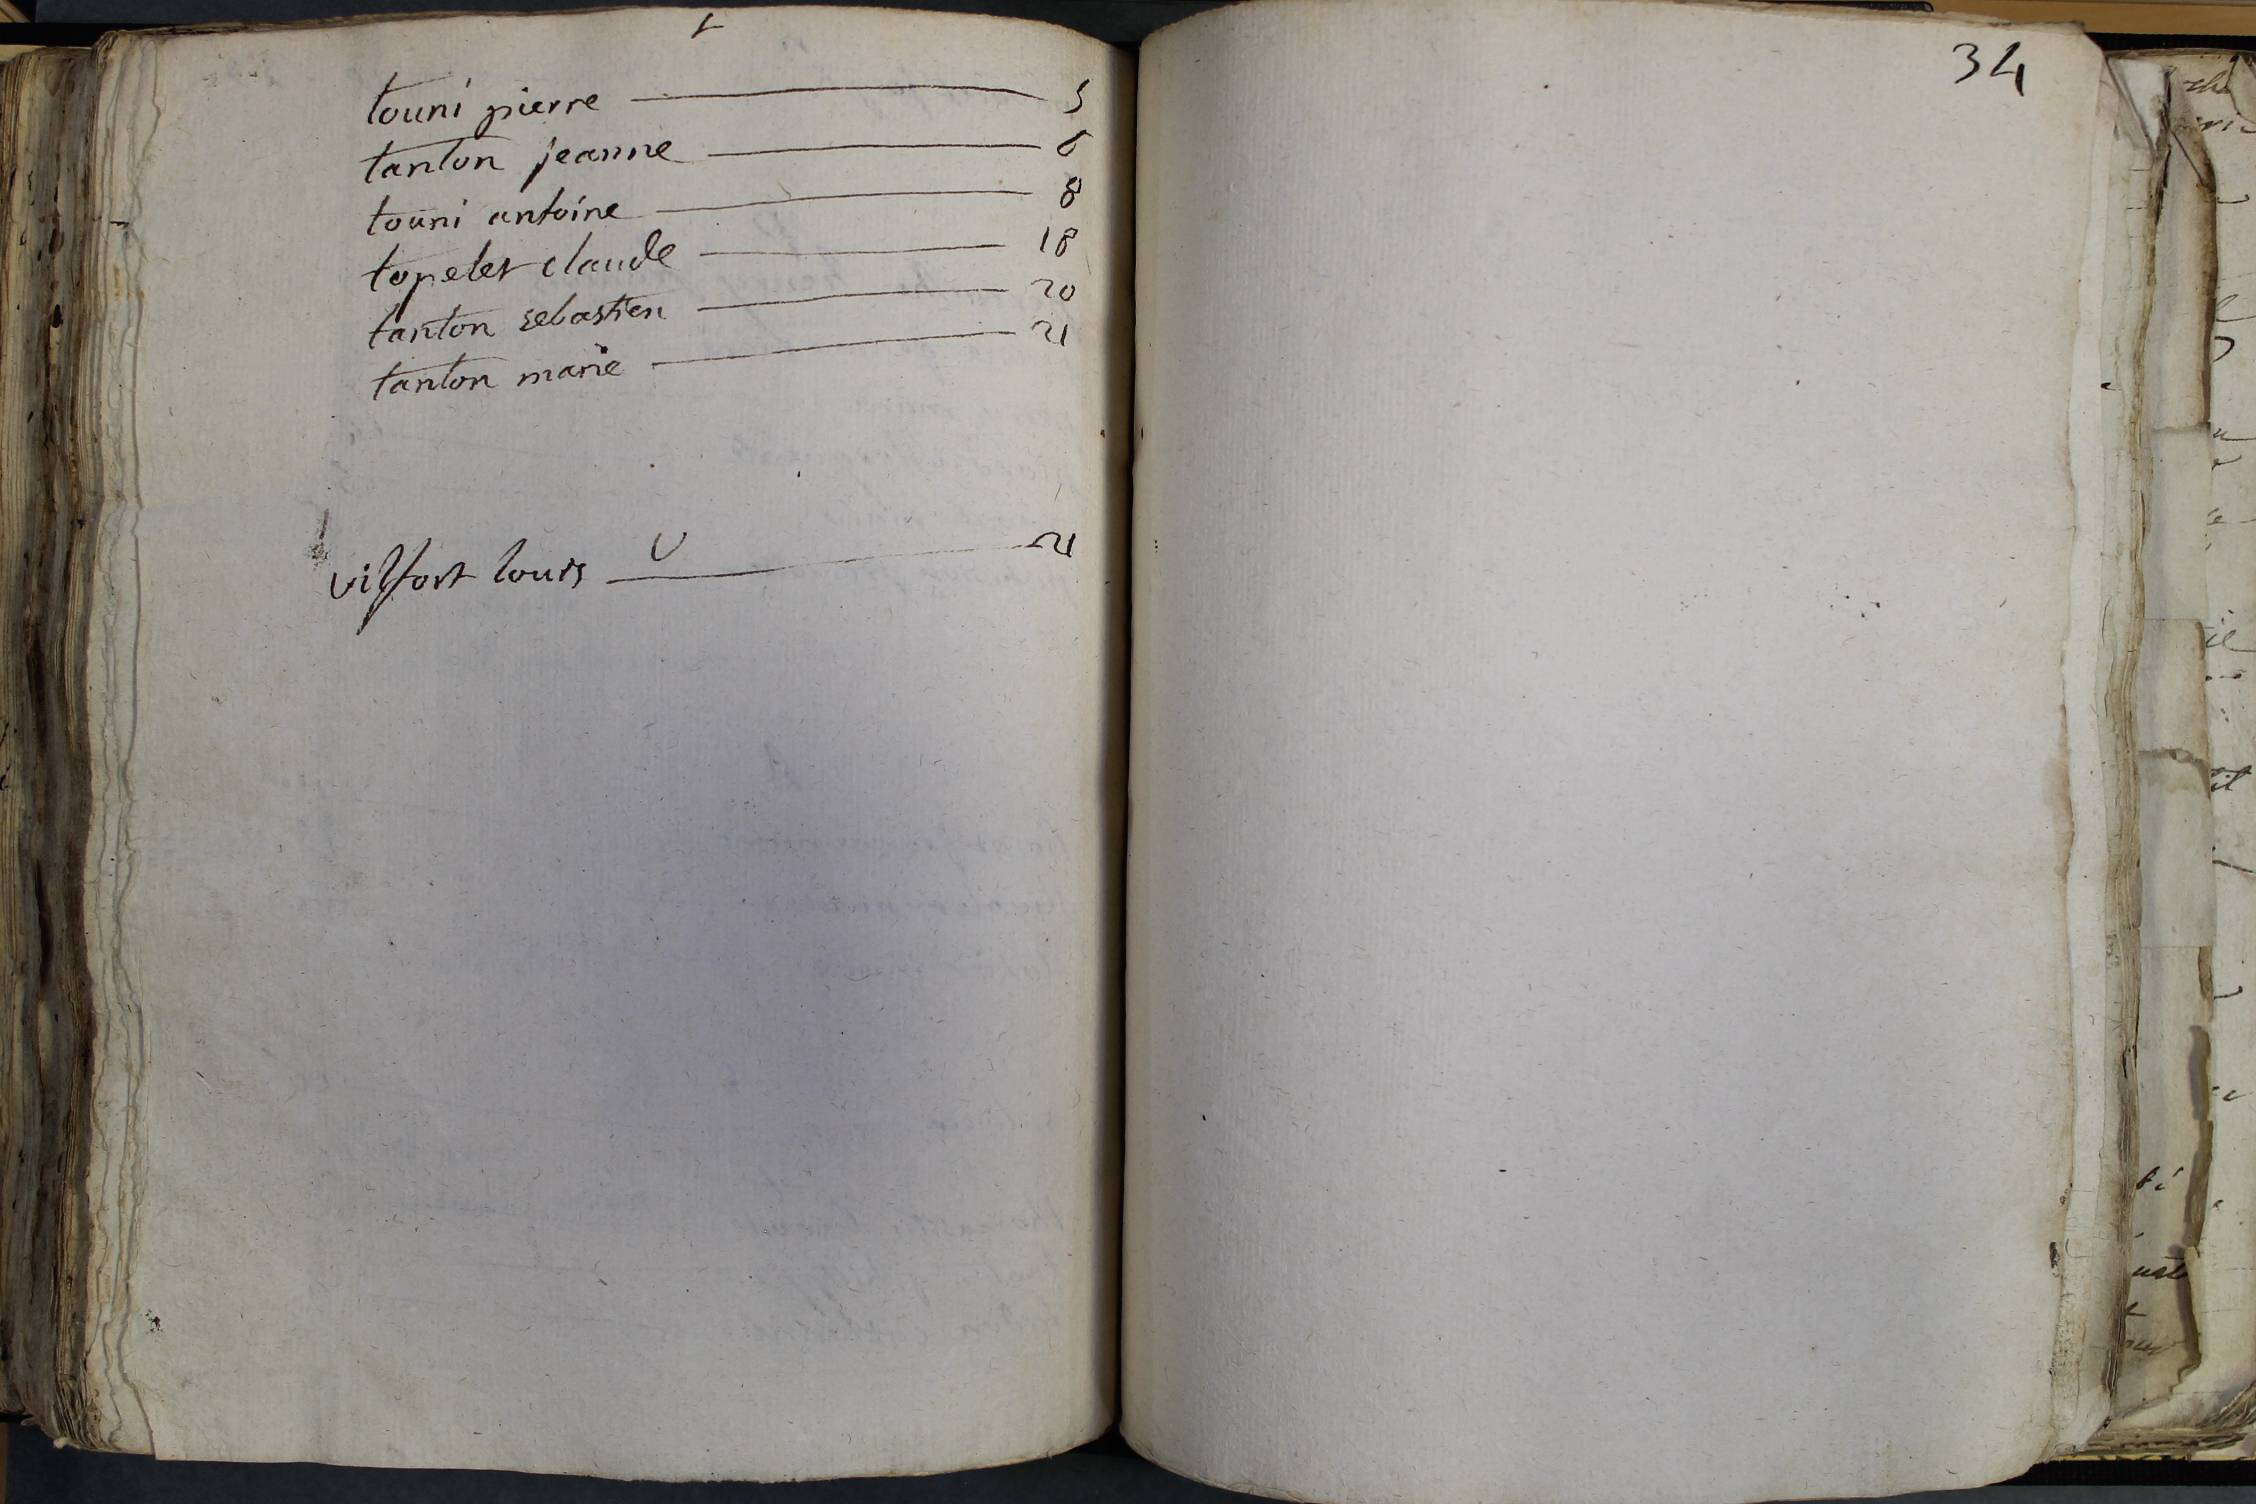 t
touni pierre 5
tanton jeanne 6
touni antoine 8
topelet claude 18
tanton sebastien 20
tanton marie 21
V
vilfort louis 21
34